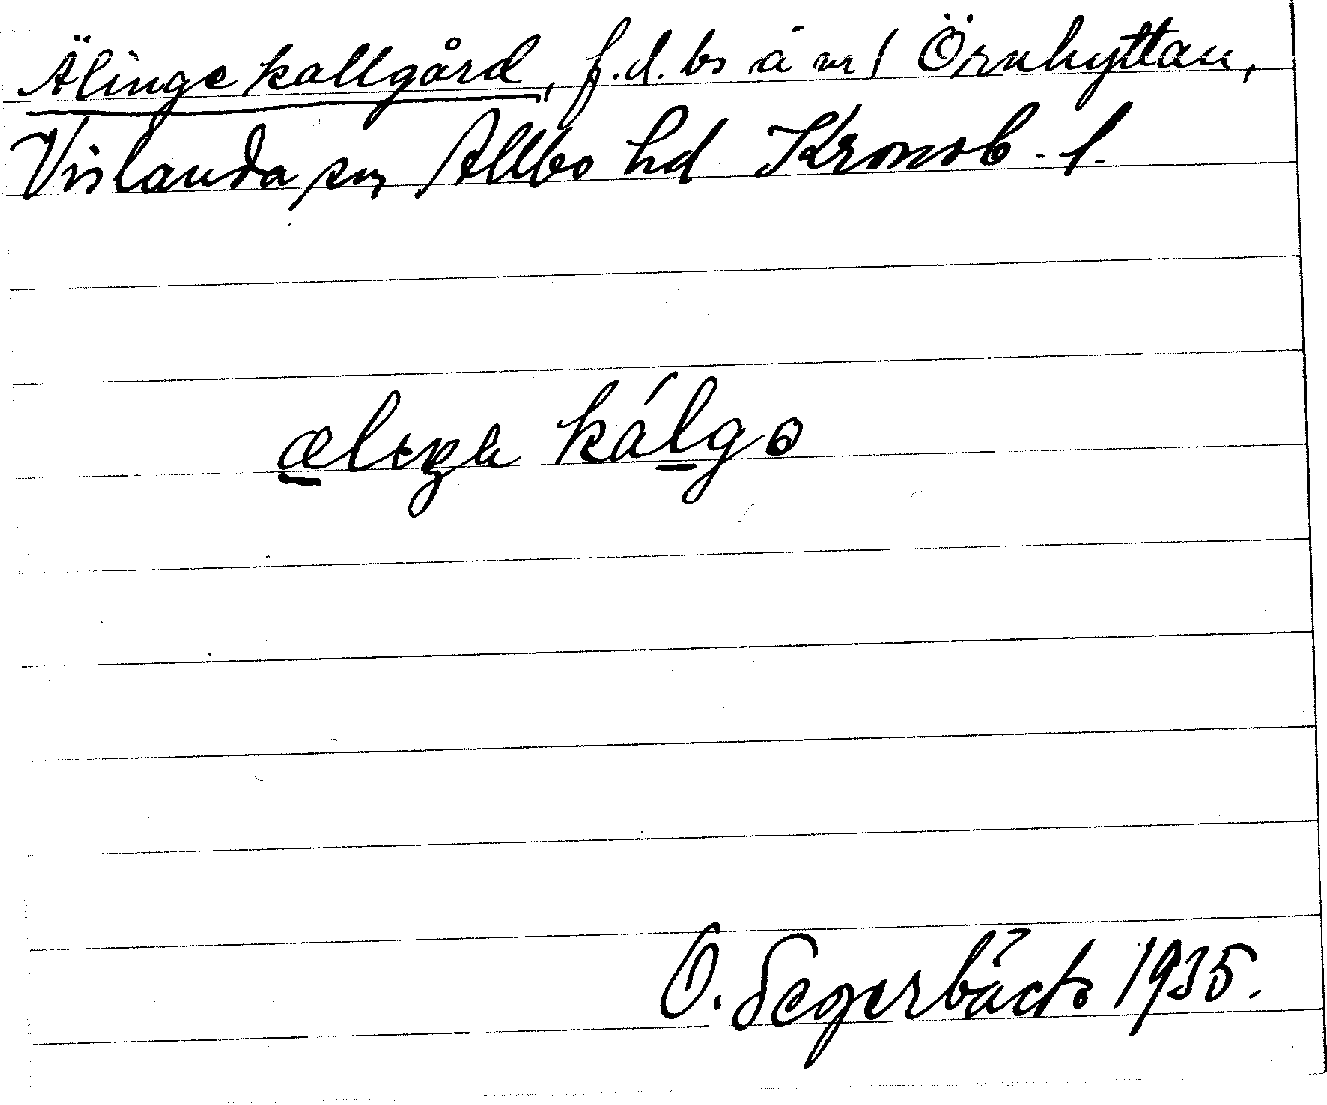 Älinge kallgård, f.d. bs å nr 1 Örnhyttan,
Vislanda sn Allbo hd Kronob. l.
æliŋa kálgo
O. Segerbäck 1935.